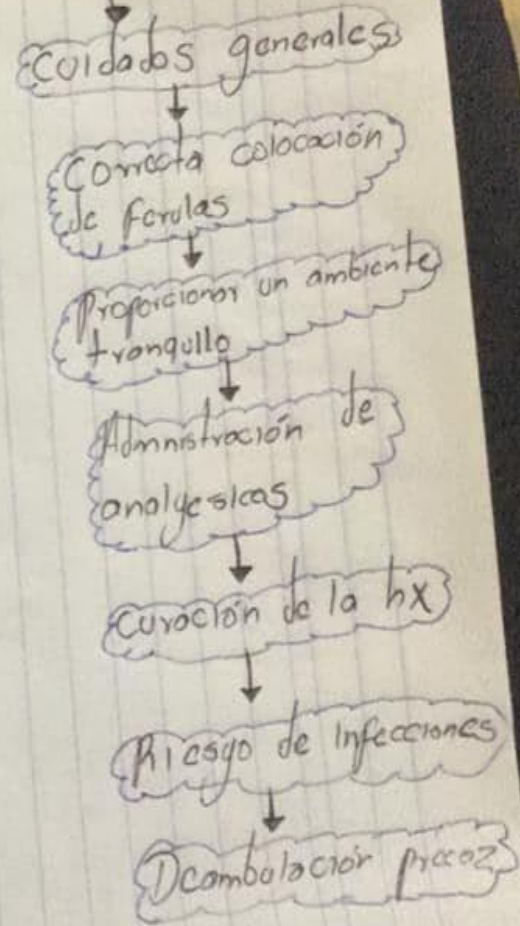 Cuidados generales
Correcta colocación
de ferulas
Proporcionar un ambiente
tranquilo
Admnistración de
analgesicas
Curación de la hx
Riesgo de infecciones
Deambulación precoz